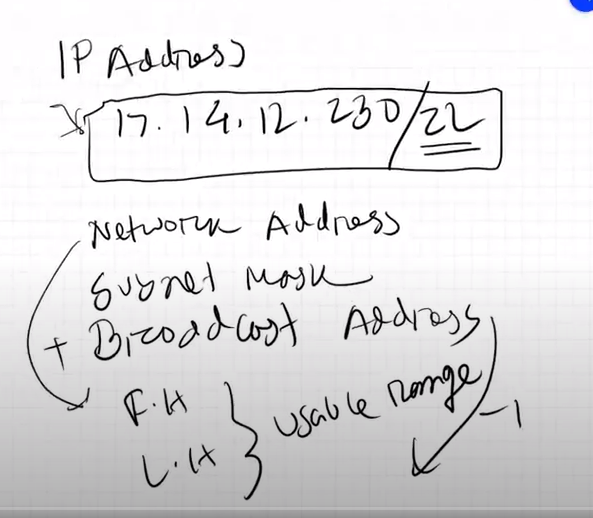 IP Address
17.14.12.230/22
Network Address
Subnet Mask
+ Broadcast Address
F.H
L.H } Usable Range
-1